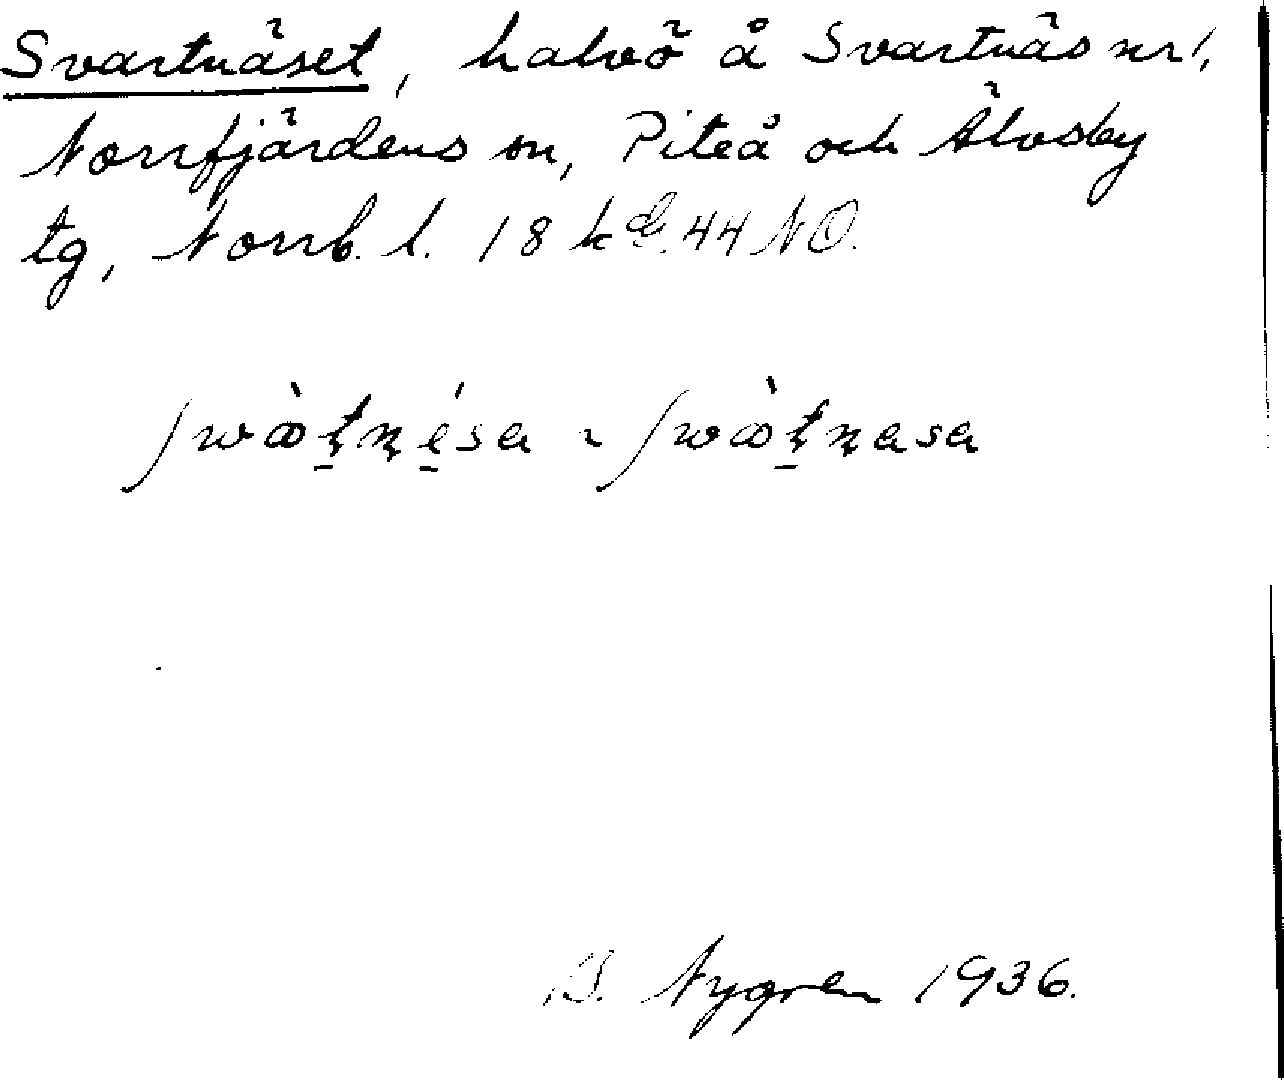 Svartnäset, halvö å Svartnäs nr 1,
Norrfjärdens sn, Piteå och Älvsby
tg, Norrb. l. 18 k d. 44 NO.
B. Nygren 1936.